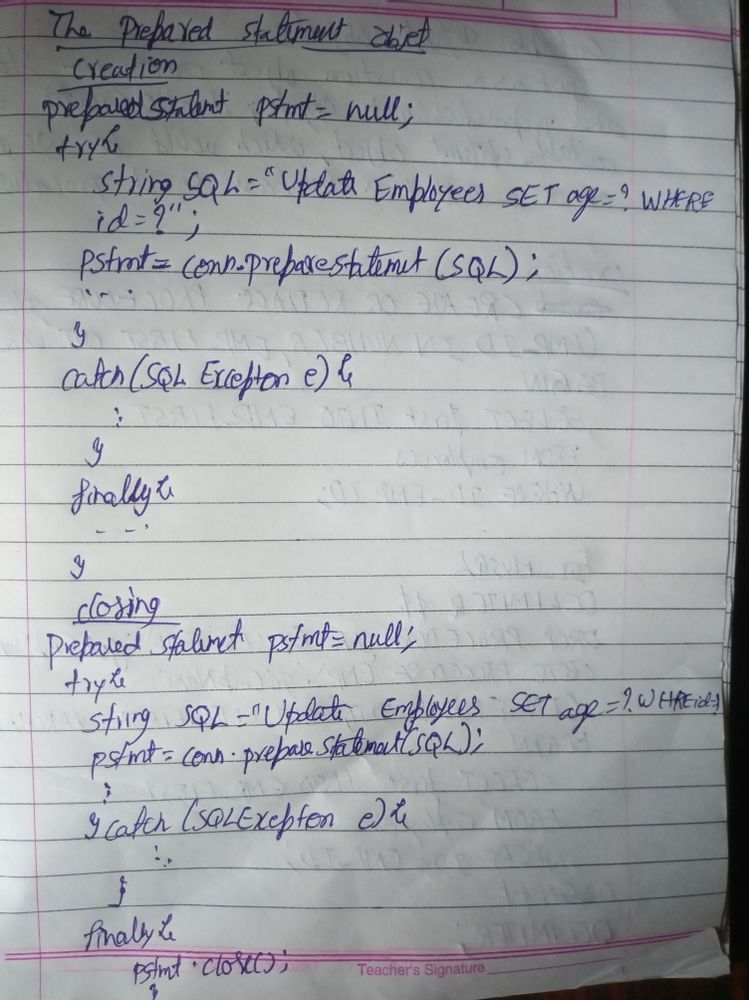 The Prepared statement objet
Creation
prepared statemt pstmt = null;
try{
string SQL = "Update Employees SET age=? WHERE
id = ?";
pstmt = conn.prepare statemet (SQL);
...
}
catch (SQL Excepton e) {
:
}
finally {
- - -
}
closing
Prepared statemet pstmt = null;
try{
string SQL = "Update Employees SET age=? WHERE id=?
pstmt = conn.prepare statement (SQL);
:
} catch (SQLExcepton e) {
:.
}
finally {
pstmt.close();
}
Teacher's Signature